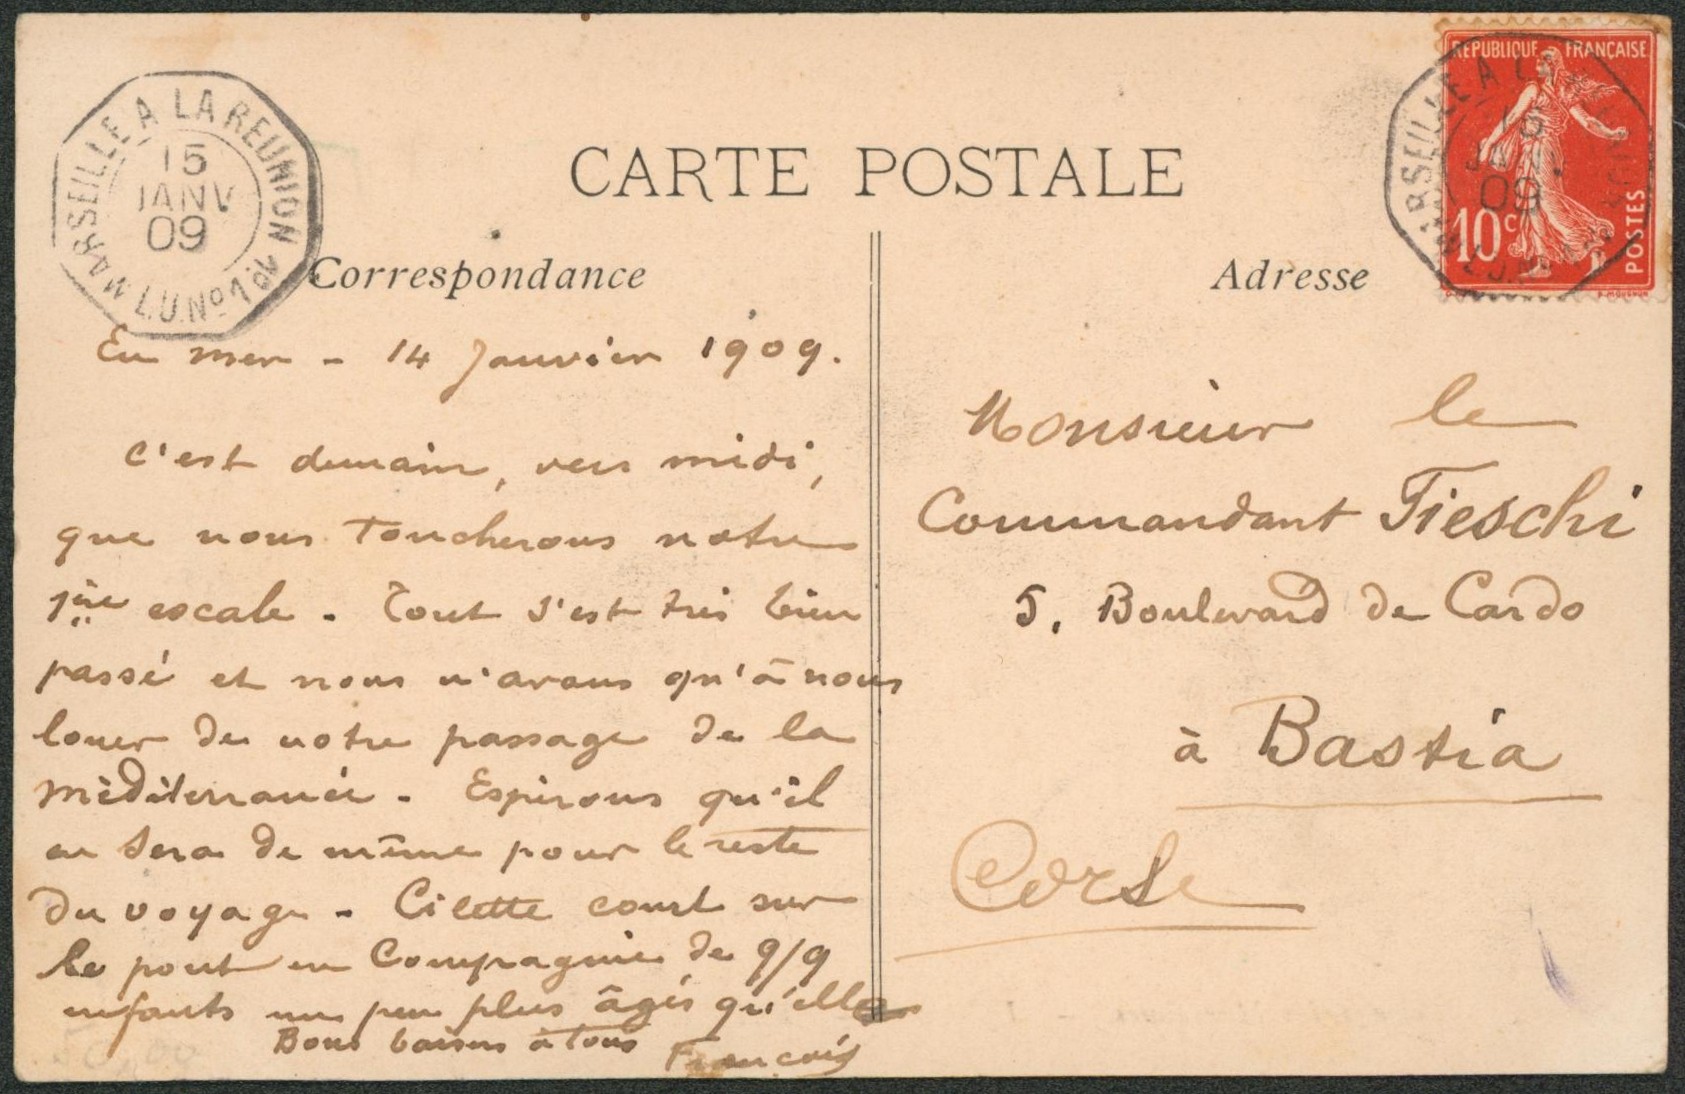 CARTE POSTALE
Correspondance
Adresse
MARSEILLE A LA REUNION
15
JANV
09
L.U.No1
REPUBLIQUE FRANÇAISE
10c
POSTES
MARSEILLE A LA REUNION
JANV
09
En mer - 14 Janvier 1909.
C'est demain, vers midi,
que nous toucherons notre
1ère escale. Tout s'est très bien
passé et nous n'avons qu'à nous
louer de notre passage de la
méditerranée. Espérons qu'il
en sera de même pour le reste
du voyage. Cilette court sur
le pont en compagnie de q/q
enfants un peu plus âgés qu'elle
Bons baisers à tous François
Monsieur le
Commandant Fieschi
5, Boulevard de Cardo
à Bastia
Corse